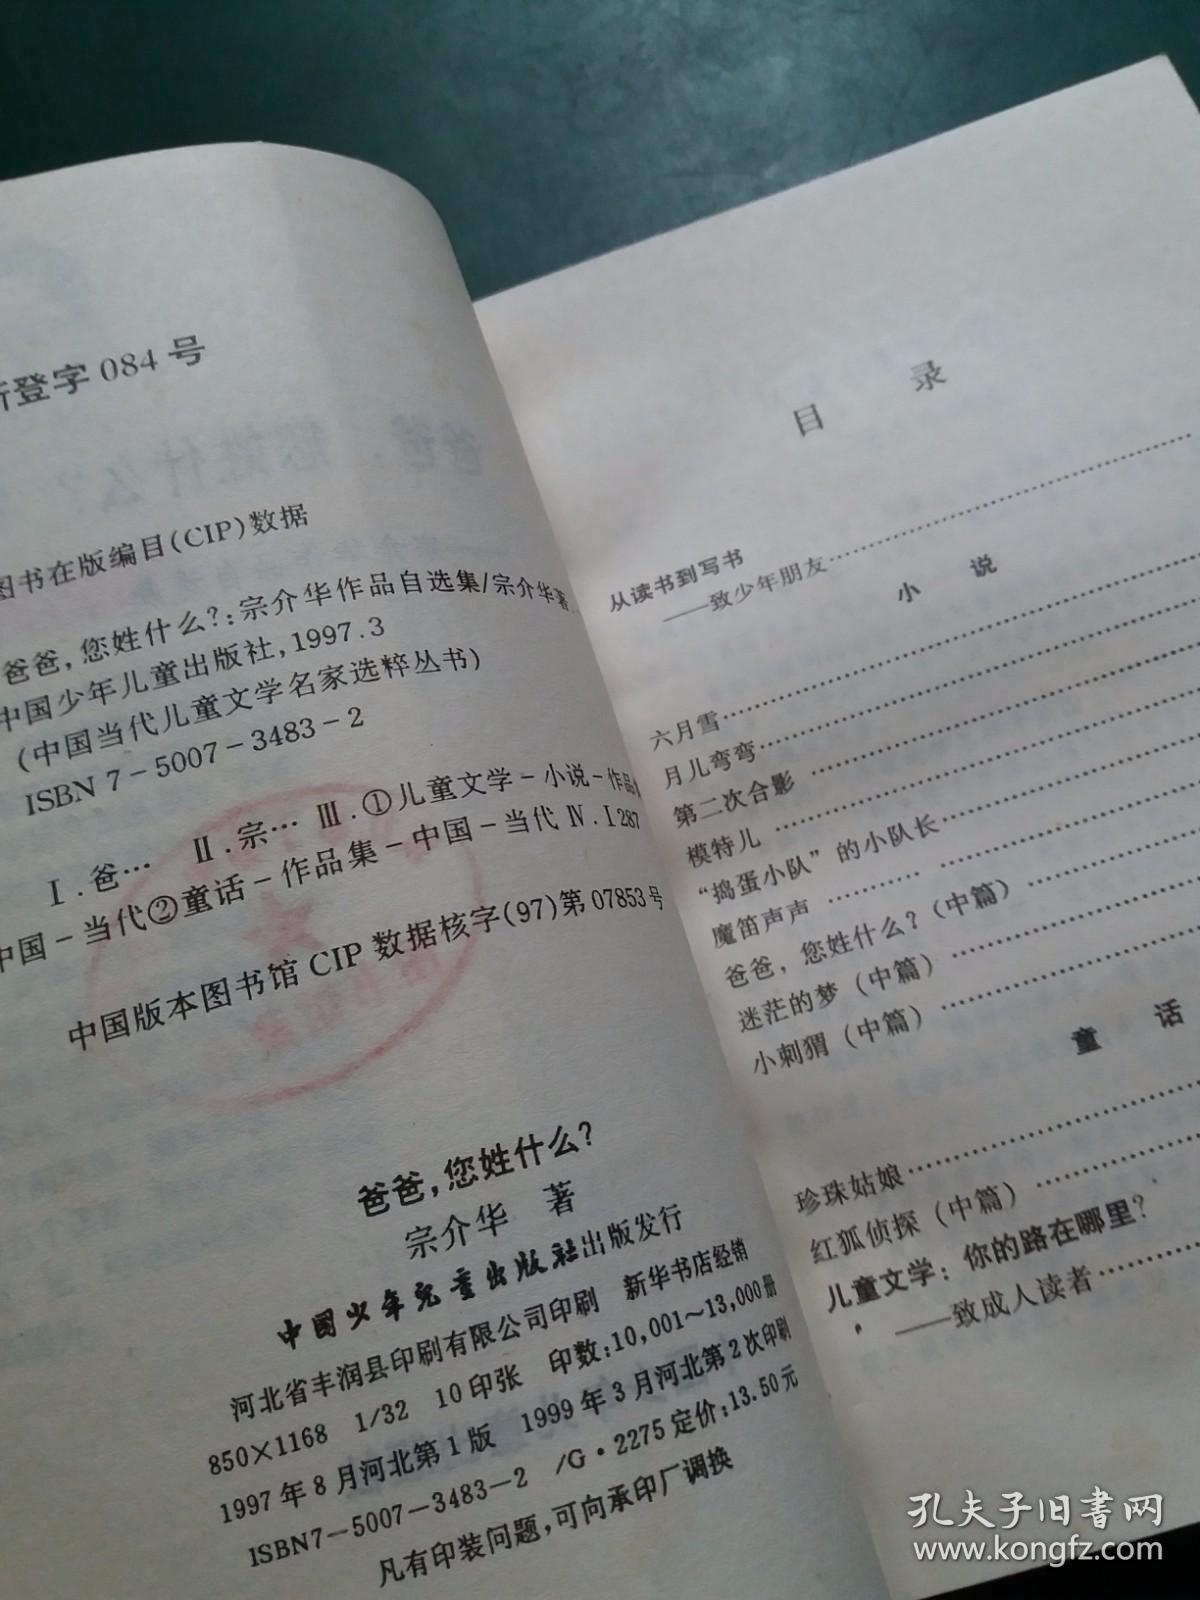 登字 084 号
图书在版编目(CIP)数据
爸爸,您姓什么?:宗介华作品自选集/宗介华著.
中国少年儿童出版社,1997.3
(中国当代儿童文学名家选粹丛书)
ISBN 7-5007-3483-2
Ⅰ.爸… Ⅱ.宗… Ⅲ.①儿童文学-小说-作品
中国-当代②童话-作品集-中国-当代 Ⅳ.I287
中国版本图书馆 CIP 数据核字(97)第 07853 号
爸爸,您姓什么?
宗介华 著
中国少年儿童出版社出版发行
河北省丰润县印刷有限公司印刷 新华书店经销
850×1168 1/32 10印张 印数:10,001~13,000册
1997年8月河北第1版 1999年3月河北第2次印刷
ISBN7-5007-3483-2 /G·2275 定价:13.50元
凡有印装问题,可向承印厂调换
目 录
从读书到写书
——致少年朋友
小 说
六月雪
月儿弯弯
第二次合影
模特儿
“捣蛋小队”的小队长
魔笛声声
爸爸,您姓什么?(中篇)
迷茫的梦(中篇)
小刺猬(中篇)
童 话
珍珠姑娘
红狐侦探(中篇)
儿童文学:你的路在哪里?
——致成人读者
孔夫子旧书网
www.kongfz.com